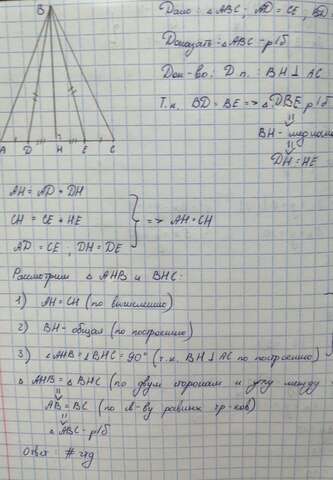 B
Дано: △ABC; AD = CE, BD
Доказать: △ABC - р/б
Док-во: Д.п.: BH ⊥ AC
Т.к. BD = BE => △DBE р/б
BH - медиана
DH = HE
A D H E C
AH = AD + DH
CH = CE + HE
AD = CE; DH = DE
=> AH = CH
Рассмотрим △ AHB и BHC:
1) AH = CH (по вычислению)
2) BH - общая (по построению)
3) ∠AHB = ∠BHC = 90° (т.к. BH ⊥ AC по построению)
△ AHB = △ BHC (по двум сторонам и углу между
AB = BC (по св-ву равных тр-ков)
△ ABC - р/б
Ответ: # чтд